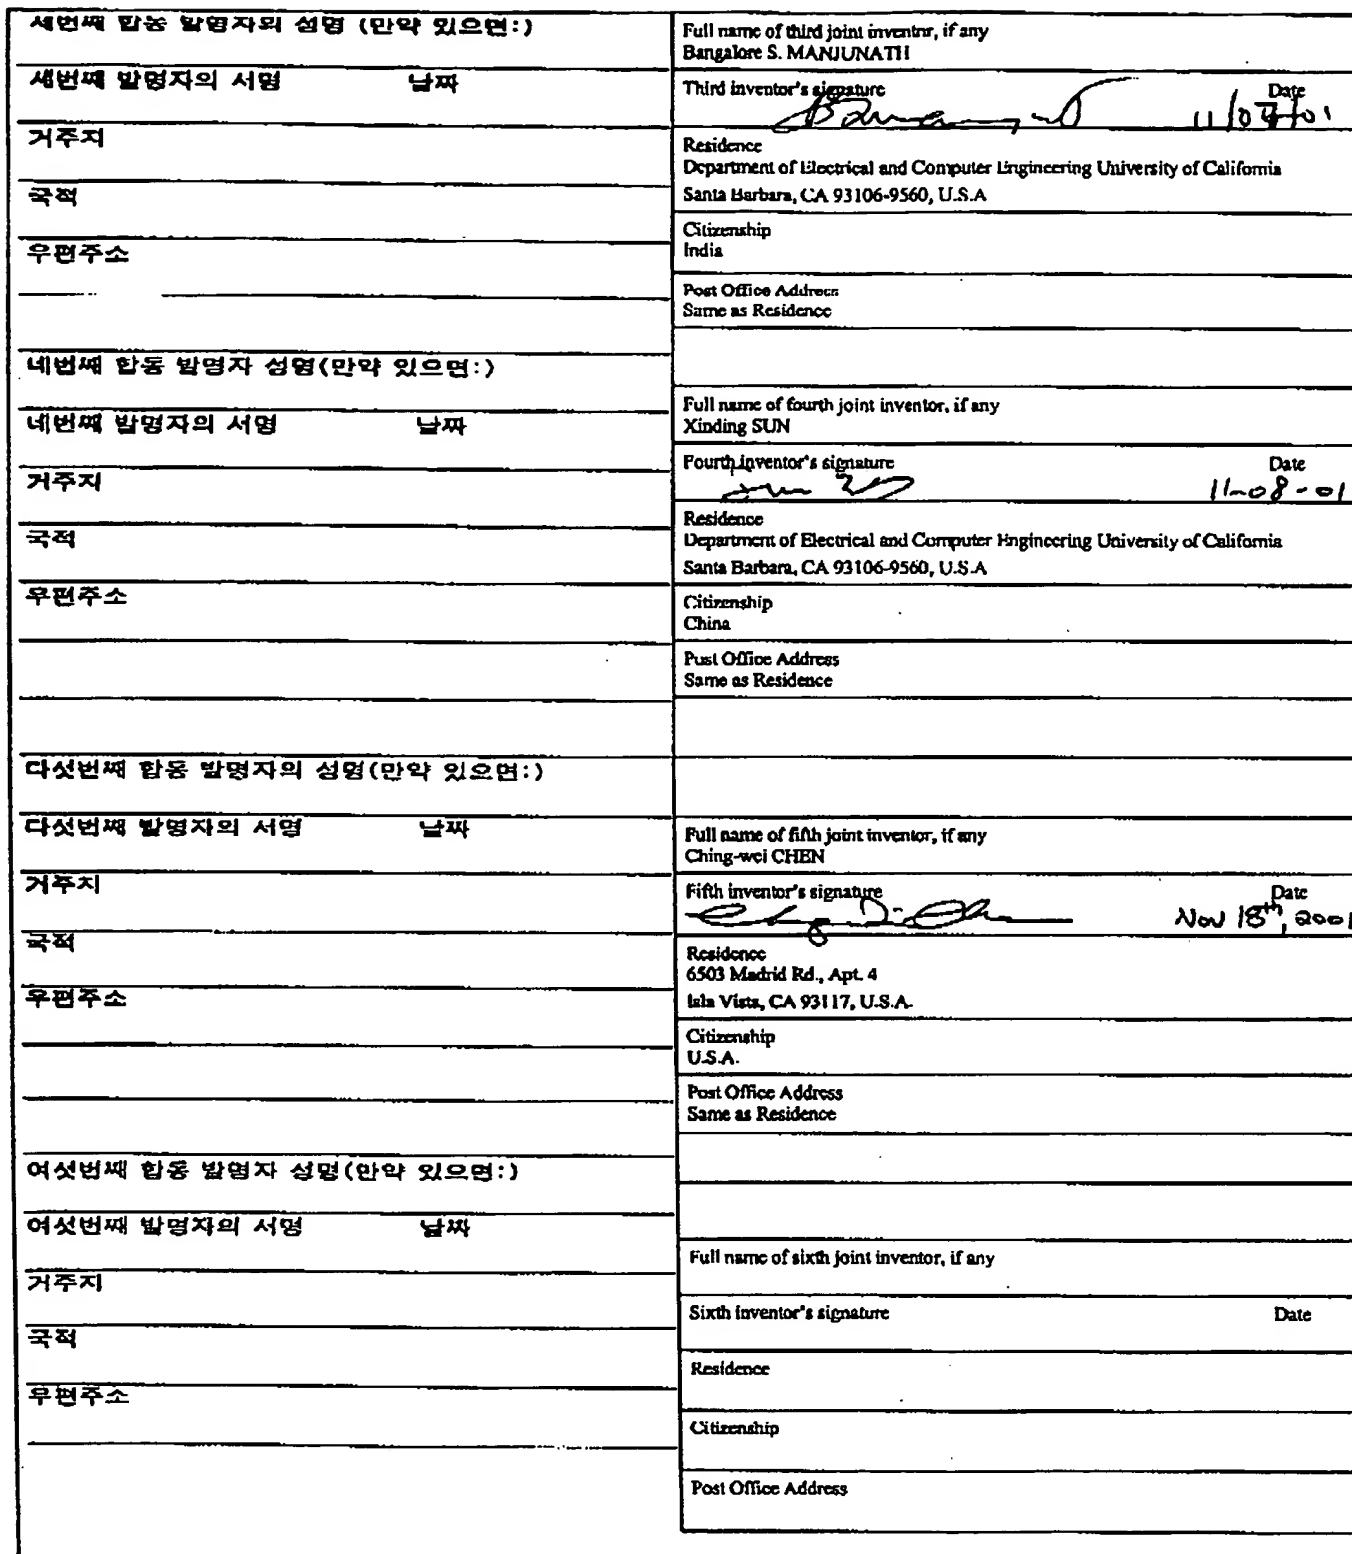 세번째 합동 발명자의 성명 (만약 있으면:)
세번째 발명자의 서명 날짜
거주지
국적
우편주소
네번째 합동 발명자 성명(만약 있으면:)
네번째 발명자의 서명 날짜
거주지
국적
우편주소
다섯번째 합동 발명자의 성명(만약 있으면:)
다섯번째 발명자의 서명 날짜
거주지
국적
우편주소
여섯번째 합동 발명자 성명(만약 있으면:)
여섯번째 발명자의 서명 날짜
거주지
국적
우편주소
Full name of third joint inventor, if any
Bangalore S. MANJUNATH
Third inventor's signature Date
Residence
Department of Electrical and Computer Engineering University of California
Santa Barbara, CA 93106-9560, U.S.A
Citizenship
India
Post Office Address
Same as Residence
Full name of fourth joint inventor, if any
Xinding SUN
Fourth inventor's signature Date
11-08-01
Residence
Department of Electrical and Computer Engineering University of California
Santa Barbara, CA 93106-9560, U.S.A
Citizenship
China
Post Office Address
Same as Residence
Full name of fifth joint inventor, if any
Ching-wei CHEN
Fifth inventor's signature Date
Nov 18th, 2001
Residence
6503 Madrid Rd., Apt. 4
Isla Vista, CA 93117, U.S.A.
Citizenship
U.S.A.
Post Office Address
Same as Residence
Full name of sixth joint inventor, if any
Sixth inventor's signature Date
Residence
Citizenship
Post Office Address